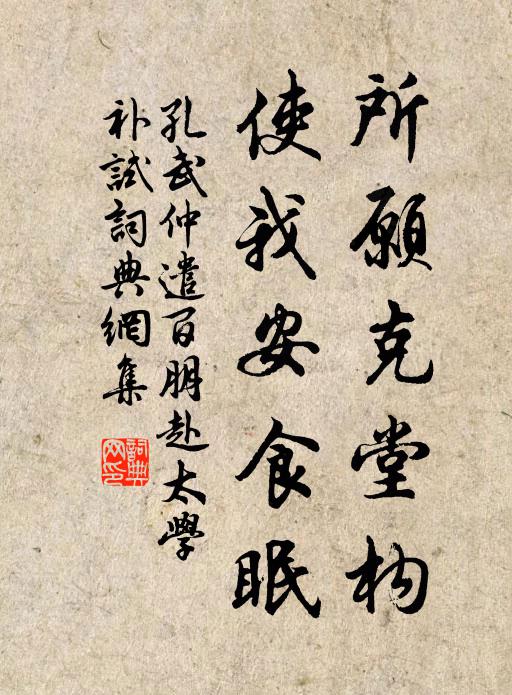 所願克堂构
使我安食眠
孔武仲遣百朋赴太學
补試詞典網集
詞典網印